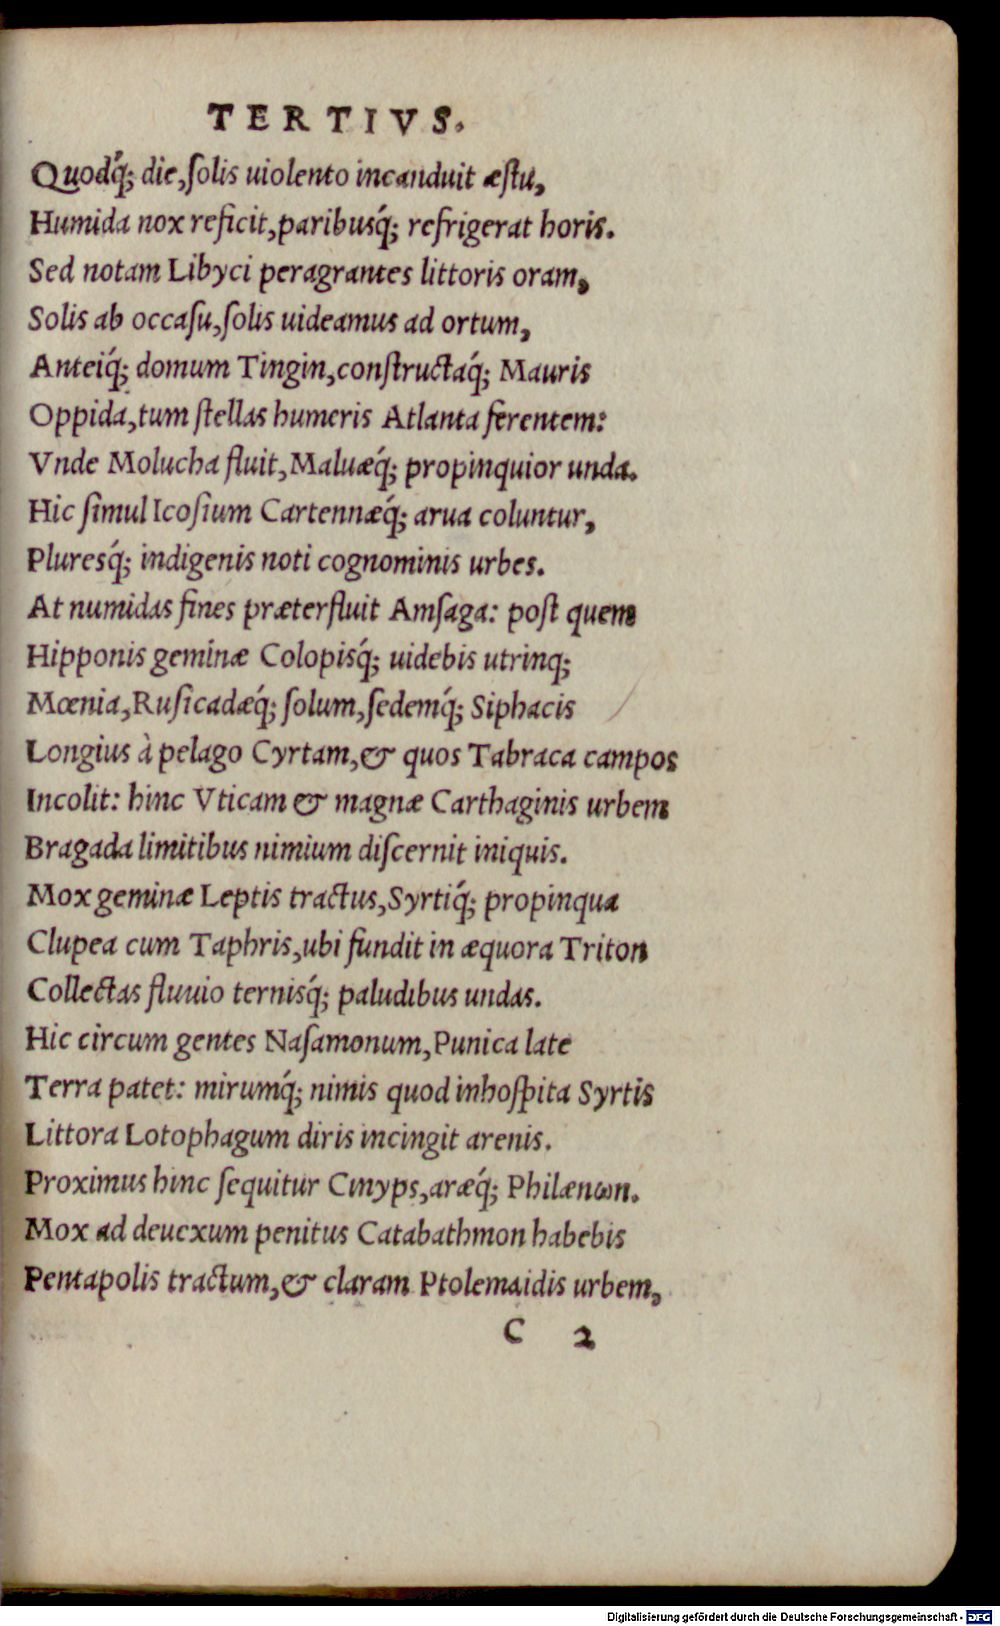 TERTIVS.
Quodq́; die, ſolis uiolento incanduit æſtu,
Humida nox reficit, paribusq́; refrigerat horis.
Sed notam Libyci peragrantes littoris oram,
Solis ab occaſu, ſolis uideamus ad ortum,
Anteiq́; domum Tingin, conſtructaq́; Mauris
Oppida, tum ſtellas humeris Atlanta ferentem:
Vnde Molucha fluit, Maluæq́; propinquior unda.
Hic ſimul Icoſium Cartennæq́; arua coluntur,
Pluresq́; indigenis noti cognominis urbes.
At numidas fines præterfluit Amſaga: poſt quem
Hipponis geminæ Colopisq́; uidebis utrinq;
Mœnia, Ruſicadæq́; ſolum, ſedemq́; Siphacis
Longius à pelago Cyrtam, & quos Tabraca campos
Incolit: hinc Vticam & magnæ Carthaginis urbem
Bragada limitibus nimium diſcernit iniquis.
Mox geminæ Leptis tractus, Syrtiq́; propinqua
Clupea cum Taphris, ubi fundit in æquora Triton
Collectas fluuio ternisq́; paludibus undas.
Hic circum gentes Naſamonum, Punica late
Terra patet: mirumq́; nimis quod inhoſpita Syrtis
Littora Lotophagum diris incingit arenis.
Proximus hinc ſequitur Cinyps, aræq́; Philænωn.
Mox ad deuexum penitus Catabathmon habebis
Pentapolis tractum, & claram Ptolemaidis urbem,
C 2
Digitalisierung gefördert durch die Deutsche Forschungsgemeinschaft - DFG